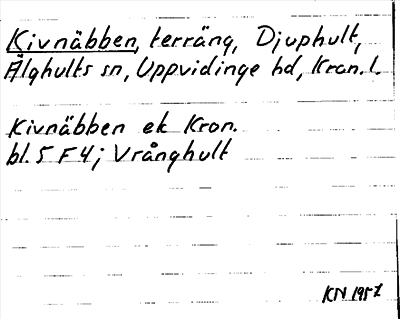 Kivnäbben, terräng, Djuphult,
Älghults sn, Uppvidinge hd, Kron. l.
Kivnäbben ek Kron.
bl. 5 F 4; Vrånghult
KN 1951